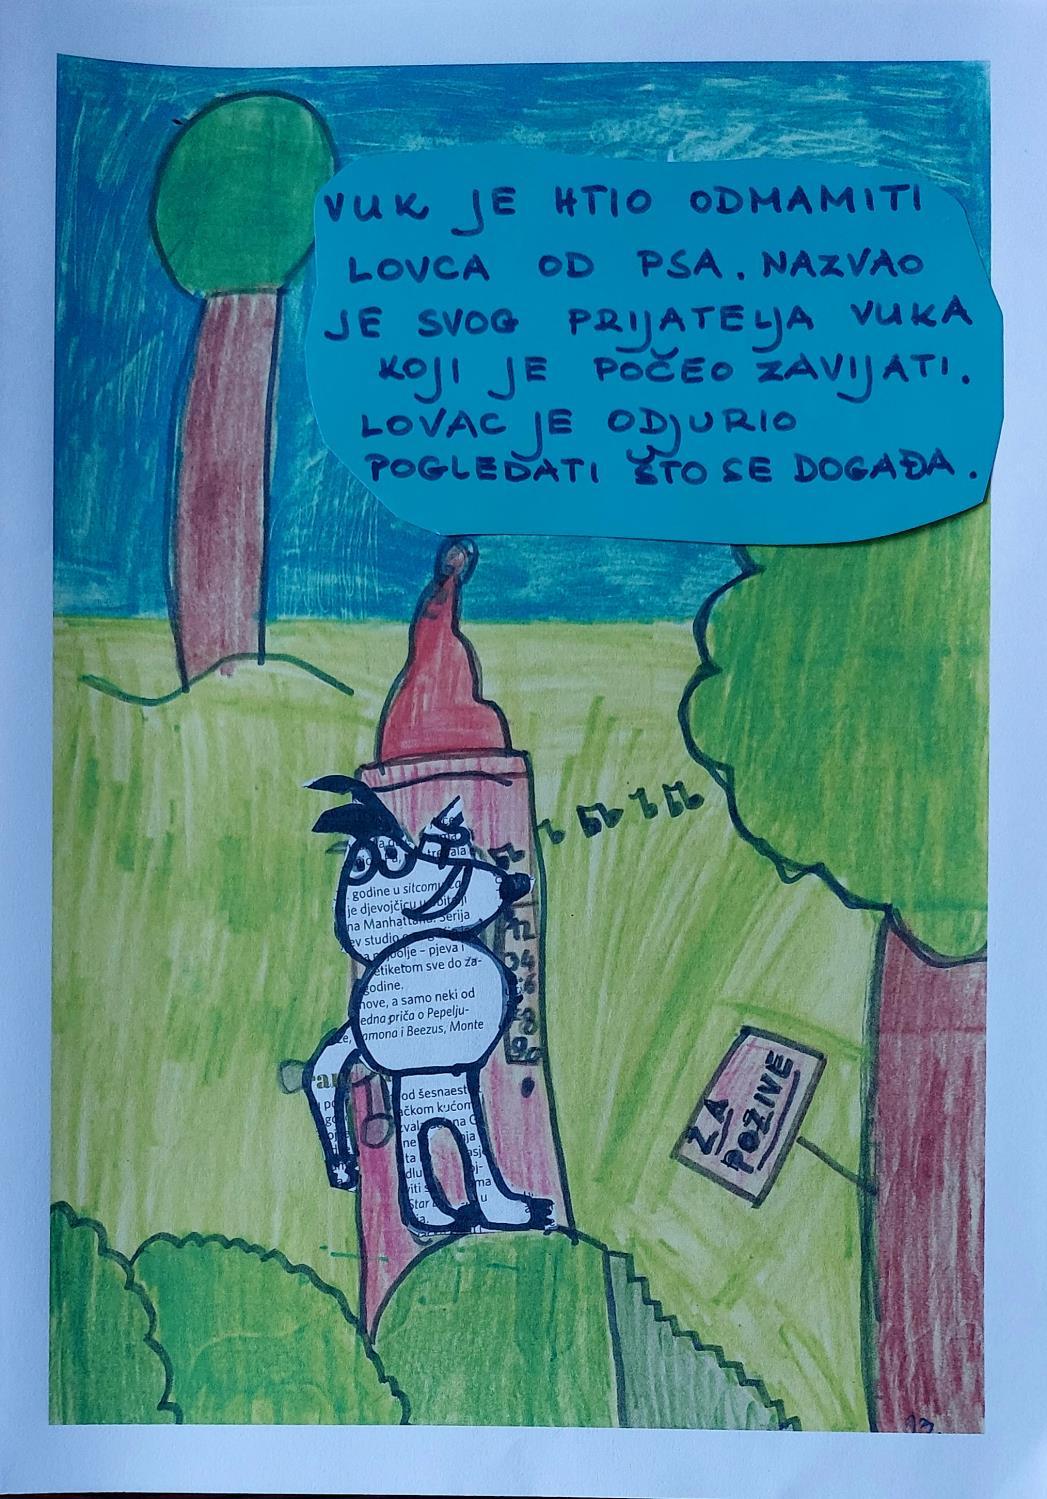 VUK JE HTIO ODMAMITI
LOVCA OD PSA. NAZVAO
JE SVOG PRIJATELJA VUKA
KOJI JE POČEO ZAVIJATI.
LOVAC JE ODJURIO
POGLEDATI ŠTO SE DOGAĐA.
godine u sitcomu
je djevojčicu u
na Manhattanu. Serija
ev studio
bolje – pjeva i
etiketom sve do za-
godine.
nove, a samo neki od
edna priča o Pepelju-
amona i Beezus, Monte
od šesnaest
ačkom kućom
zval
ne
ta
dlu
viti s
Star
u
ZA
POZIVE
13.